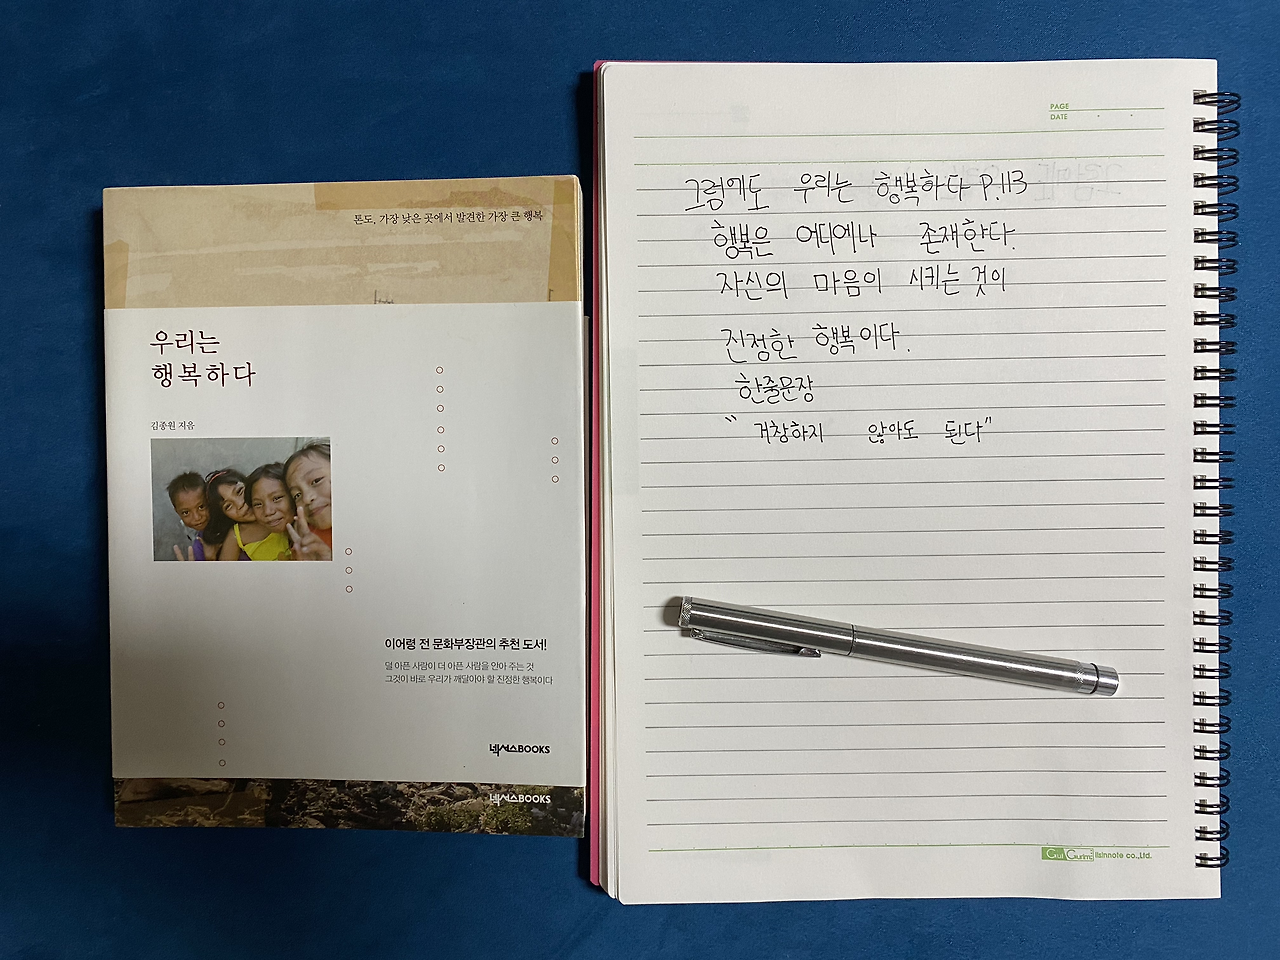 톤도, 가장 낮은 곳에서 발견한 가장 큰 행복
우리는
행복하다
김종원 지음
이어령 전 문화부장관의 추천 도서!
덜 아픈 사람이 더 아픈 사람을 안아 주는 것
그것이 바로 우리가 깨달아야 할 진정한 행복이다
넥서스BOOKS
넥서스BOOKS
PAGE
DATE
그럼에도 우리는 행복하다 P.113
행복은 어디에나 존재한다.
자신의 마음이 시키는 것이
진정한 행복이다.
한줄문장
"거창하지 않아도 된다"
ilsinnote co.,Ltd.